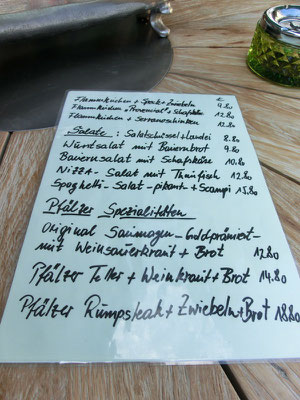 €
Flammkuchen + Speck + Zwiebeln 9.80
Flammkuchen + Provencial + Schafskäse 12.80
Flammkuchen + Serranoschinken 12.80
Salate : Salatschüssel + Landei 8.80
Wurstsalat mit Bauernbrot 9.80
Bauernsalat mit Schafskäse 10.80
NIZZA - Salat mit Thunfisch 12.80
Spaghetti - Salat - pikant + Scampi 15.80
Pfälzer Spezialitäten
Original Saumagen - Goldprämiert
mit Weinsauerkraut + Brot 12.80
Pfälzer Teller + Weinkraut + Brot 14.80
Pfälzer Rumpsteak + Zwiebeln + Brot 18.80